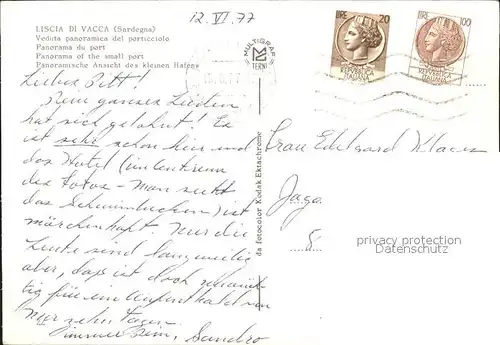 12. VI. 77
LISCIA DI VACCA (Sardegna)
Veduta panoramica del porticciolo
Panorama du port
Panorama of the small port
Panoramische Ansicht des kleinen Hafens
MULTIGRAF
TERNI
LIRE 20
LIRE 100
REPUBBLICA ITALIANA
REPUBBLICA ITALIANA
Liebes
Dein ganzes
hat sich gelohnt! Es
ist sehr schön hier und
das Hotel (im Zentrum
des Fotos - man sieht
das Schwimmbecken) ist
märchenhaft. Nur die
Leute sind langweilig
aber, das ist doch
für ein Aufenthalt von
nur zehn Tagen.
Immer Dein, Sandro
da fotocolor Kodak Ektachrome
Frau Edelgard
privacy protection
Datenschutz